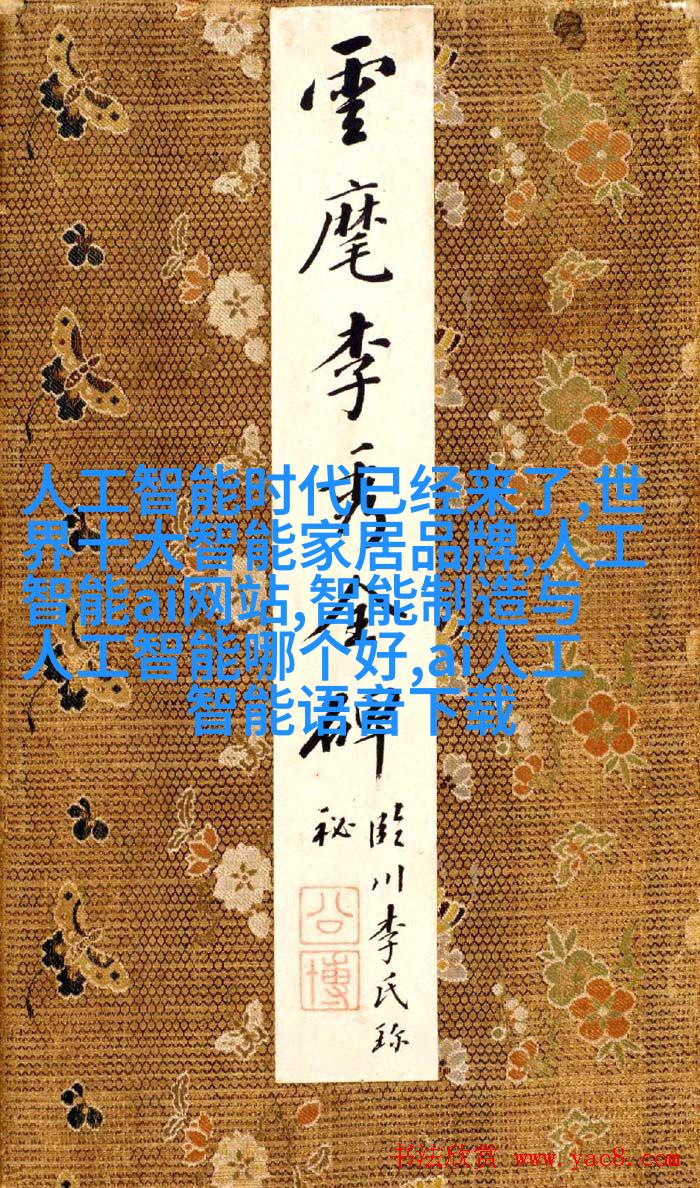 雲麾李秀全碑
臨川李氏珍
秘
公博
人工智能时代已经来了,世
界十大智能家居品牌,人工
智能ai网站,智能制造与
人工智能哪个好,ai人工
智能语音下载
书法欣赏 www.yac8.com